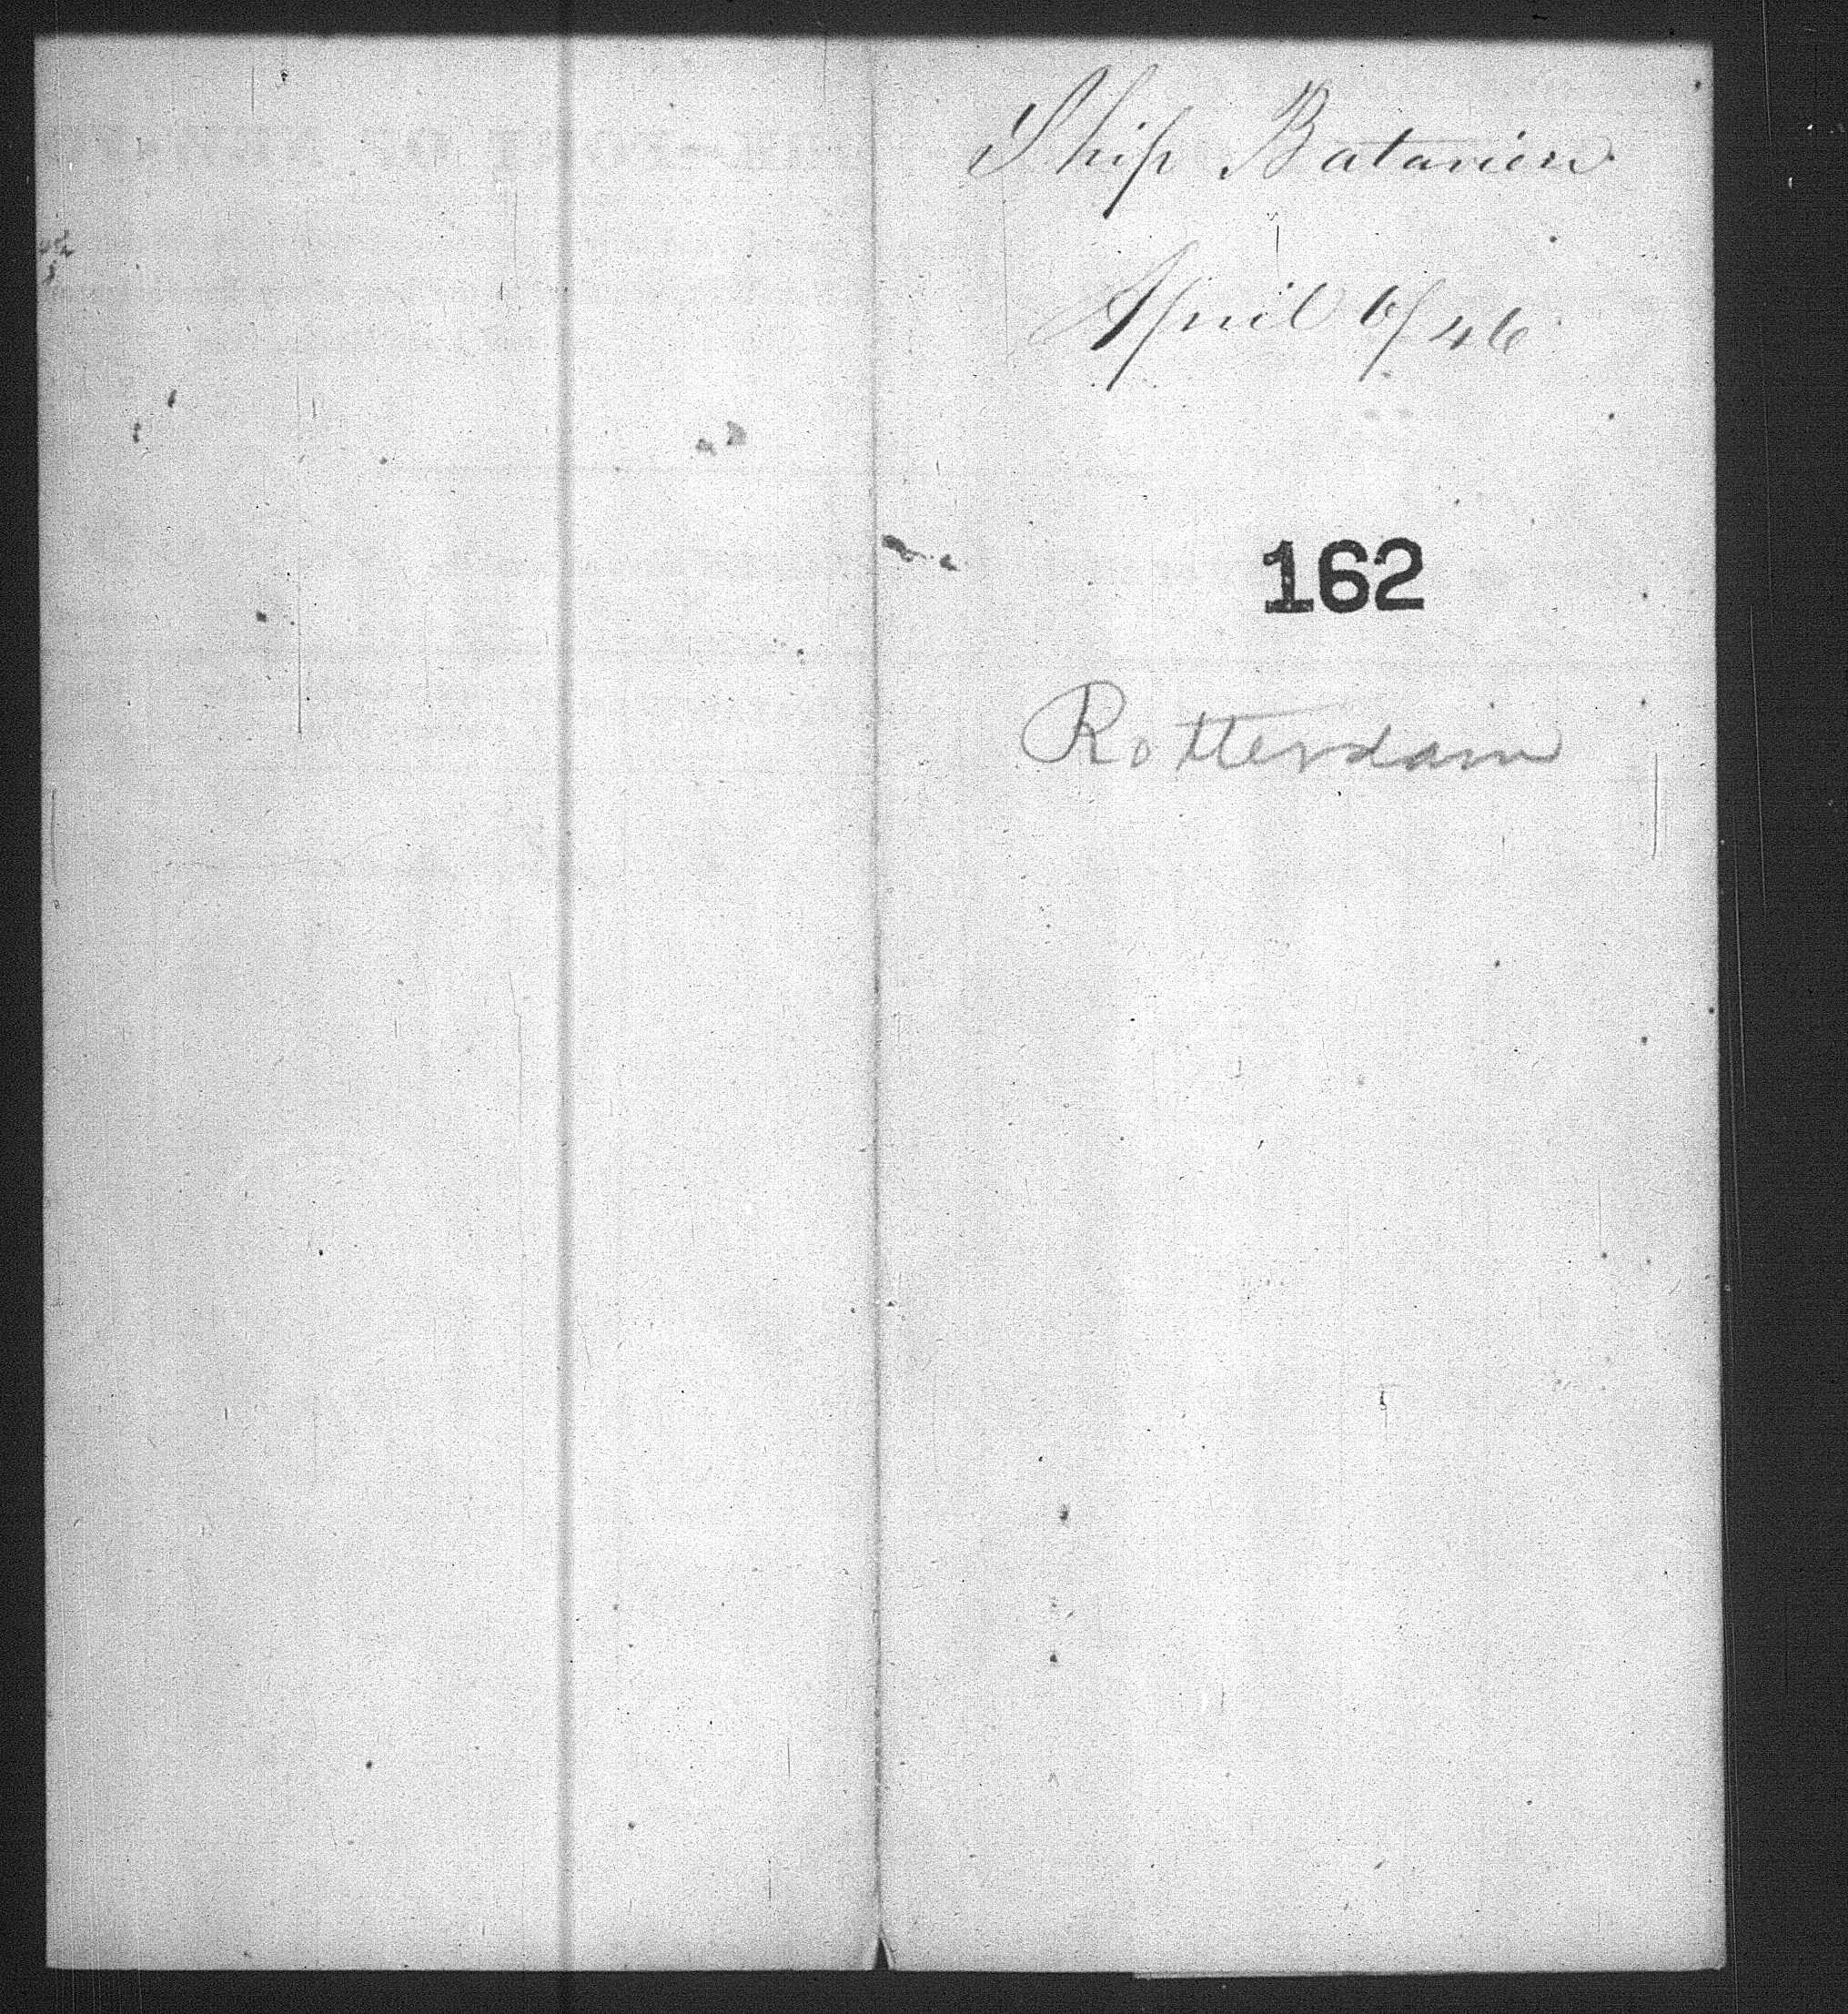 Ship Batavier
April 6/46
162
Rotterdam